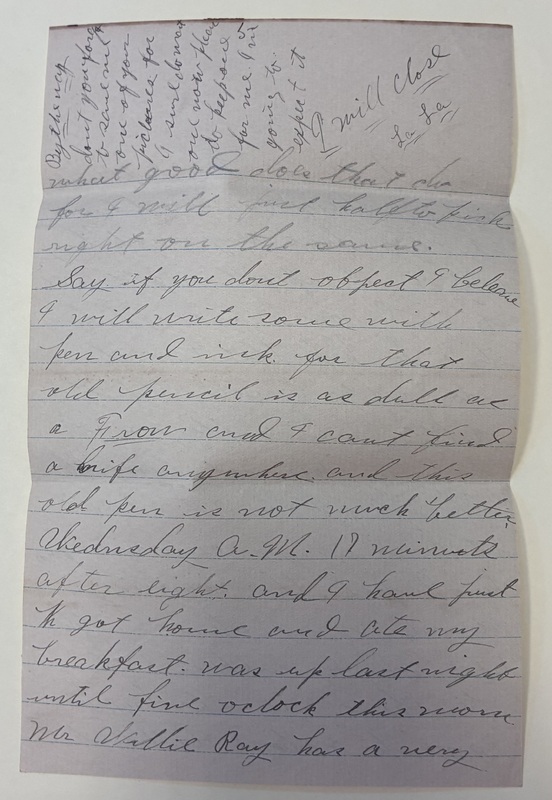 By the way
dont you forget
to send me
one of your
pictures for
I sure do want
one now that
do keep one
for me I'm
going to
expect it
I will close
La La
what good does that do
for I will just half to pick
right on the same.
Say if you dont obpect I beleave
I will write some with
pen and ink. for that
old pencil is as dull as
a Frow and I cant find
a knife anywhere. and this
old pen is not much better.
Wednsday A.M. 17 minuets
after eight. and I have just
got home and ate my
breakfast. was up last night
until five oclock this morn
Mr Vallie Ray has a very